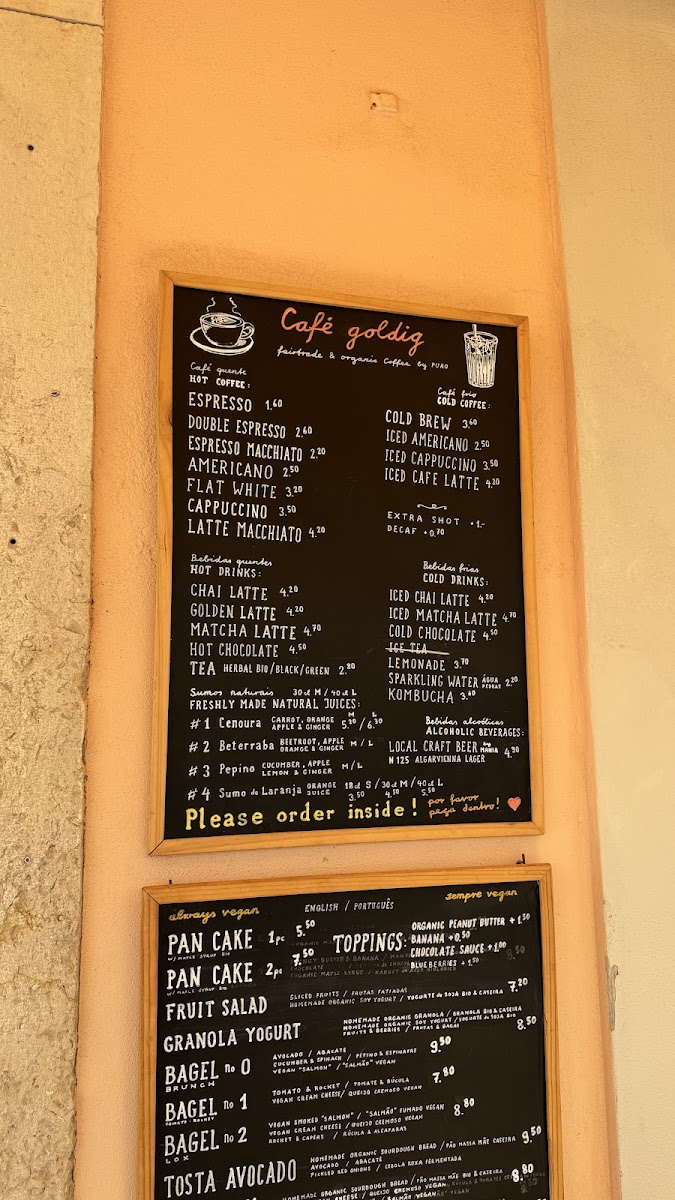 Café goldig
fairtrade & organic Coffee by PURO
Café quente
HOT COFFEE:
ESPRESSO 1.60
DOUBLE ESPRESSO 2.60
ESPRESSO MACCHIATO 2.20
AMERICANO 2.50
FLAT WHITE 3.20
CAPPUCCINO 3.50
LATTE MACCHIATO 4.20
Café frio
COLD COFFEE:
COLD BREW 3.60
ICED AMERICANO 2.50
ICED CAPPUCCINO 3.50
ICED CAFE LATTE 4.20
EXTRA SHOT +1.-
DECAF +0.70
Bebidas quentes
HOT DRINKS:
CHAI LATTE 4.20
GOLDEN LATTE 4.20
MATCHA LATTE 4.70
HOT CHOCOLATE 4.50
TEA HERBAL BIO/BLACK/GREEN 2.20
Bebidas frias
COLD DRINKS:
ICED CHAI LATTE 4.20
ICED MATCHA LATTE 4.70
COLD CHOCOLATE 4.50
ICE TEA
LEMONADE 3.70
SPARKLING WATER ÁGUA PEDRAS 2.20
KOMBUCHA 3.60
Sumos naturais 30cl M / 40cl L
FRESHLY MADE NATURAL JUICES:
#1 Cenoura CARROT, ORANGE APPLE & GINGER M 5.30 / L 6.30
#2 Beterraba BEETROOT, APPLE ORANGE & GINGER M / L
#3 Pepino CUCUMBER, APPLE LEMON & GINGER M/L
#4 Sumo de Laranja ORANGE JUICE 18cl S / 30cl M / 40cl L
3.50 4.50 5.50
Bebidas alcoólicas
ALCOHOLIC BEVERAGES:
LOCAL CRAFT BEER by MANIA 4.90
N 125 ALGARVIENNA LAGER
Please order inside! por favor peça dentro!
always vegan
ENGLISH / PORTUGUÊS
sempre vegan
PAN CAKE 1pc 5.50
W/ MAPLE SYRUP BIO
PAN CAKE 2pc 7.50
W/ MAPLE SYRUP BIO
TOPPINGS: ORGANIC PEANUT BUTTER +1.50
BANANA +0.50
CHOCOLATE SAUCE +1.00
BLUEBERRIES +1.50
FRUIT SALAD SLICED FRUITS / FRUTAS FATIADAS
HOMEMADE ORGANIC SOY YOGURT / YOGURTE de SOJA BIO & CASEIRA 7.20
GRANOLA YOGURT HOMEMADE ORGANIC GRANOLA / GRANOLA BIO & CASEIRA
HOMEMADE ORGANIC SOY YOGURT / YOGURTE de SOJA BIO
FRUITS & BERRIES / FRUTAS & BAGAS 8.50
BAGEL no 0 AVOCADO / ABACATE
BRUNCH CUCUMBER & SPINACH / PEPINO & ESPINAFRE 9.50
VEGAN "SALMON" / "SALMÃO" VEGAN
BAGEL no 1 TOMATO & ROCKET / TOMATE & RÚCULA 7.80
TOMATO - ROCKET VEGAN CREAM CHEESE / QUEIJO CREMOSO VEGAN
BAGEL no 2 VEGAN SMOKED "SALMON" / "SALMÃO" FUMADO VEGAN 8.80
LOX VEGAN CREAM CHEESE / QUEIJO CREMOSO VEGAN
ROCKET & CAPERS / RÚCULA & ALCAPARAS
TOSTA AVOCADO HOMEMADE ORGANIC SOURDOUGH BREAD / PÃO MASSA MÃE CASEIRA 9.50
AVOCADO / ABACATE
PICKLED RED ONIONS / CEBOLA ROXA FERMENTADA
HOMEMADE ORGANIC SOURDOUGH BREAD / PÃO MASSA MÃE BIO & CASEIRA 8.80
CHEESE / QUEIJO CREMOSO VEGAN
/ SALMÃO VEGAN